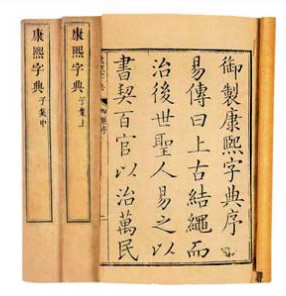 御製康熙字典序
易傳曰上古結繩而
治後世聖人易之以
書契百官以治萬民
康熙字典 子集上
康熙字典 子集中